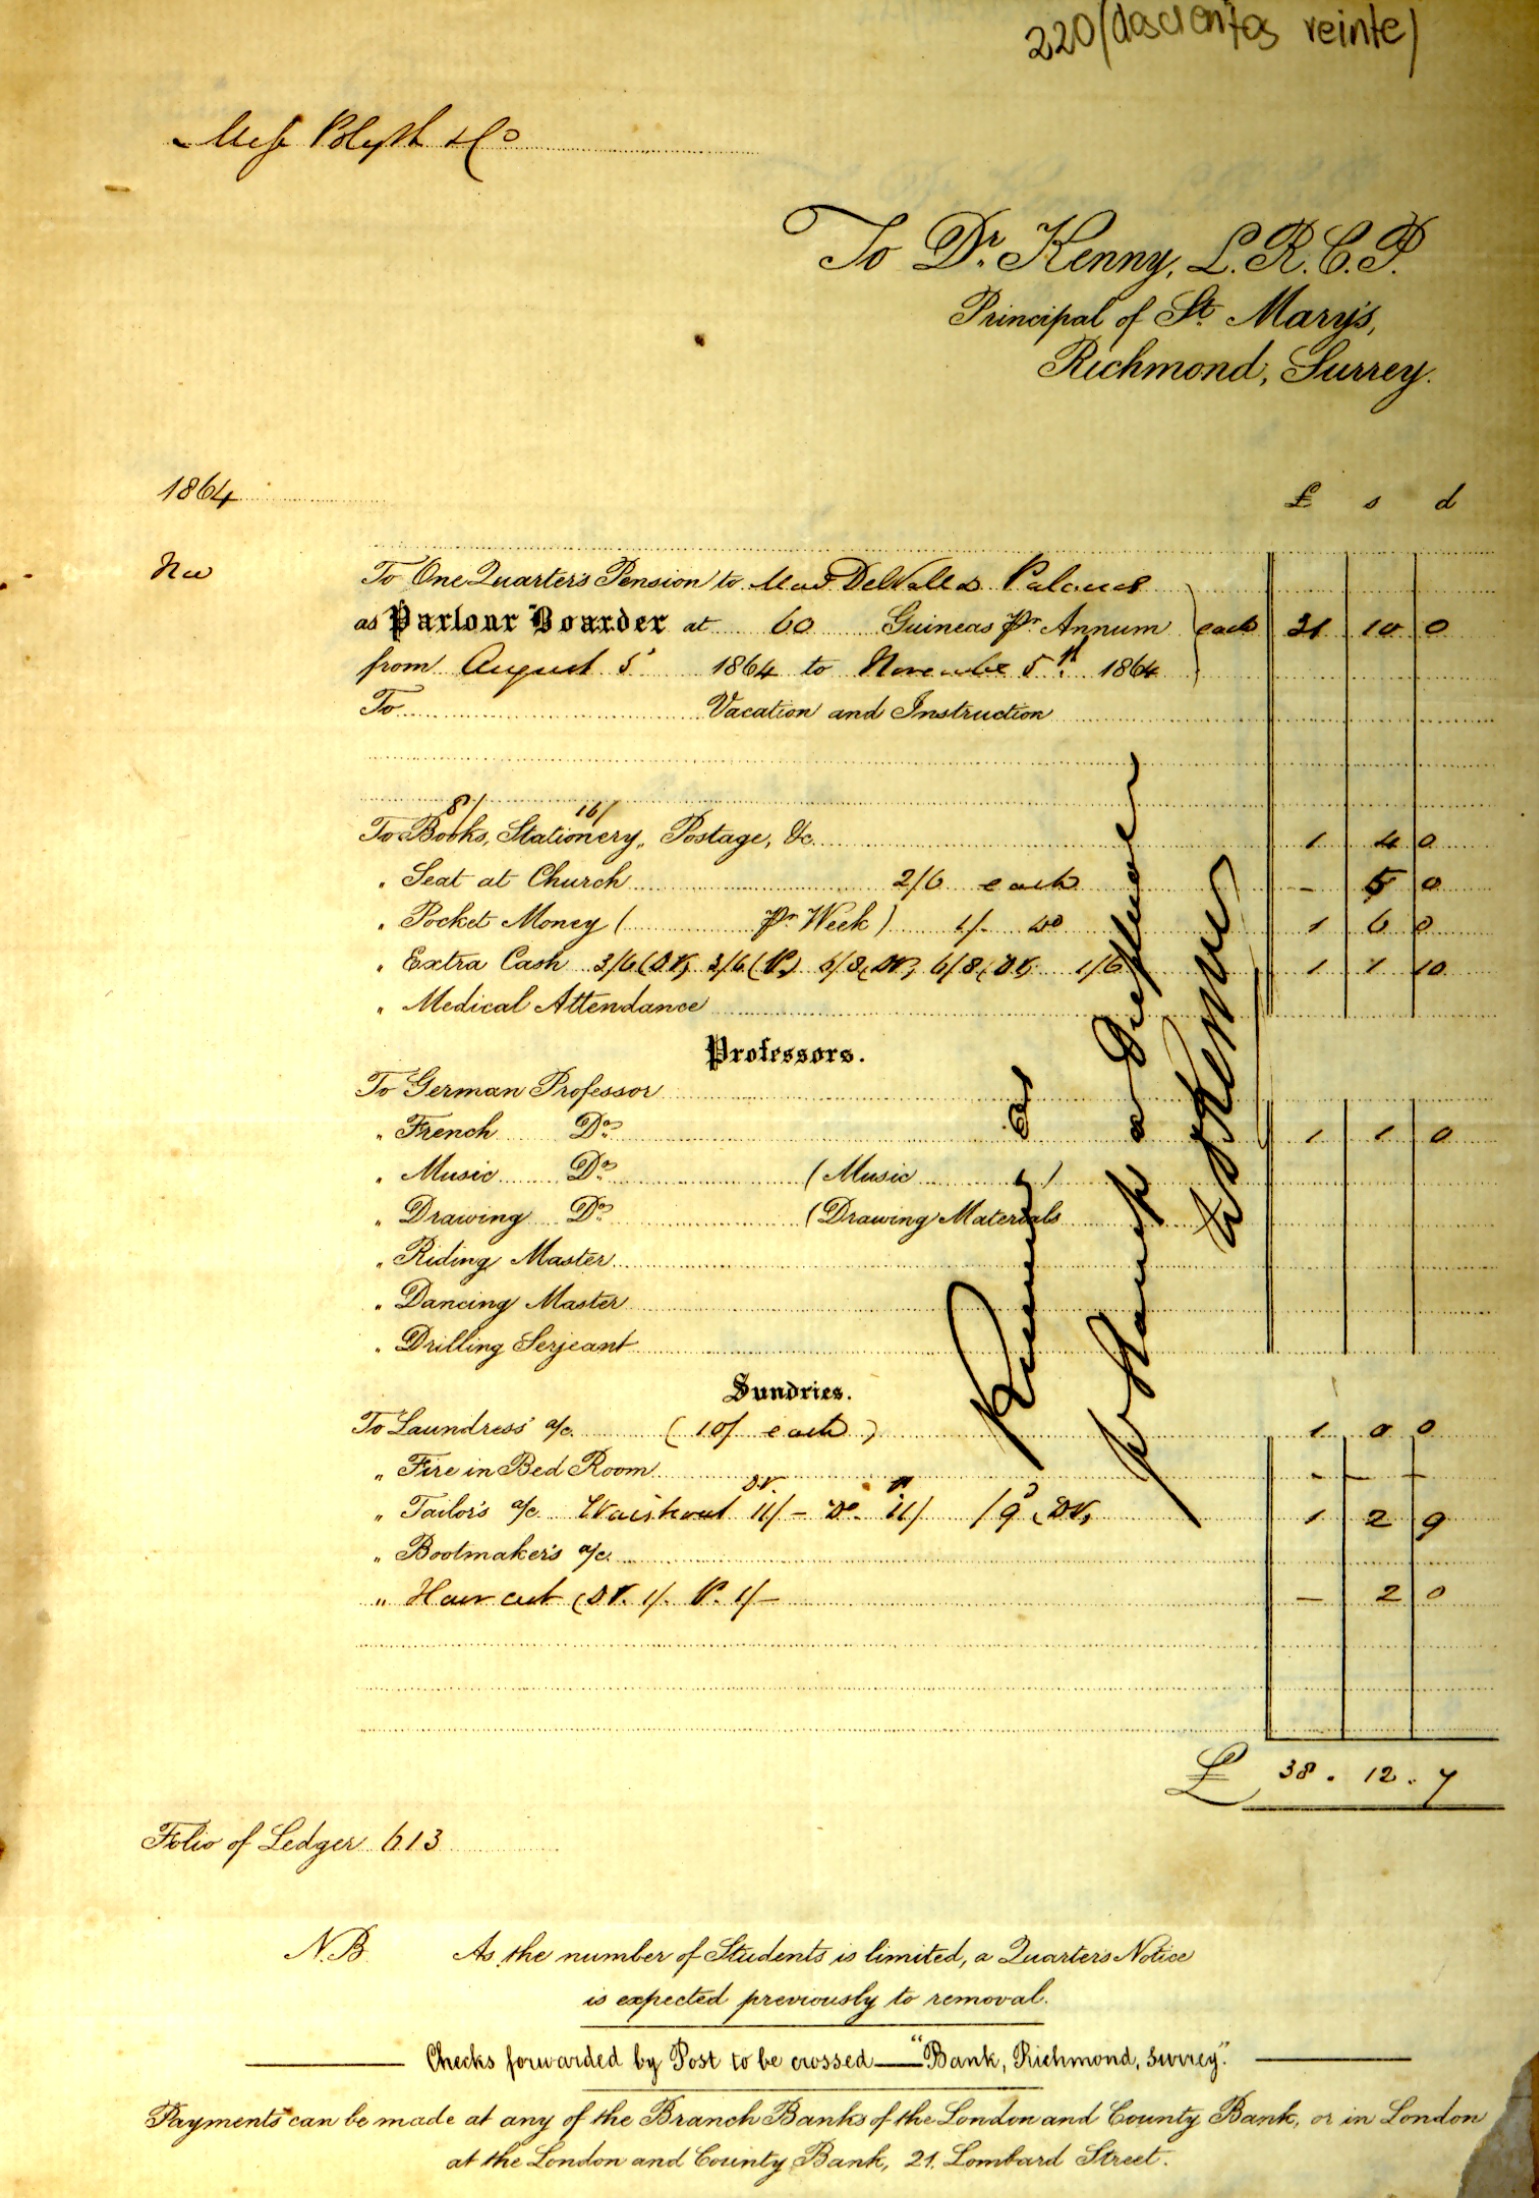 220 (doscientos veinte)
Mess Blyth & Co
To Dr. Kenny, L.R.C.P.
Principal of St. Mary's,
Richmond, Surrey.
1864
£ s d
To One Quarter's Pension to DeValle & Palacios
as Parlour Boarder at 60 Guineas Pr. Annum each 31 10 0
from August 5 1864 to November 5th 1864
To Vacation and Instruction
8/ 16/
To Books, Stationery, Postage, &c. 1 4 0
" Seat at Church 2/6 each - 5 0
" Pocket Money ( Pr. Week) 1/- do 1 6 0
" Extra Cash 3/6 (DV) 3/6 (P.) 6/8 (DV) 6/8 (DV) 1/6 1 1 10
" Medical Attendance
Professors.
To German Professor
" French Do. 1 1 0
" Music Do. (Music )
" Drawing Do. (Drawing Materials
" Riding Master
" Dancing Master
" Drilling Serjeant
Sundries.
To Laundress' a/c. (10/ each) 1 0 0
" Fire in Bed Room - - -
DV. P
" Tailor's a/c. Waistcoat 11/- Do. 11/ /9d (DV) 1 2 9
" Bootmaker's a/c.
" Hair cut (DV. 1/. P. 1/- - 2 0
£ 38 . 12 . 7
Folio of Ledger 613
N.B. As the number of Students is limited, a Quarter's Notice
is expected previously to removal.
Checks forwarded by Post to be crossed — "Bank, Richmond, Surrey."
Payments can be made at any of the Branch Banks of the London and County Bank, or in London
at the London and County Bank, 21. Lombard Street.